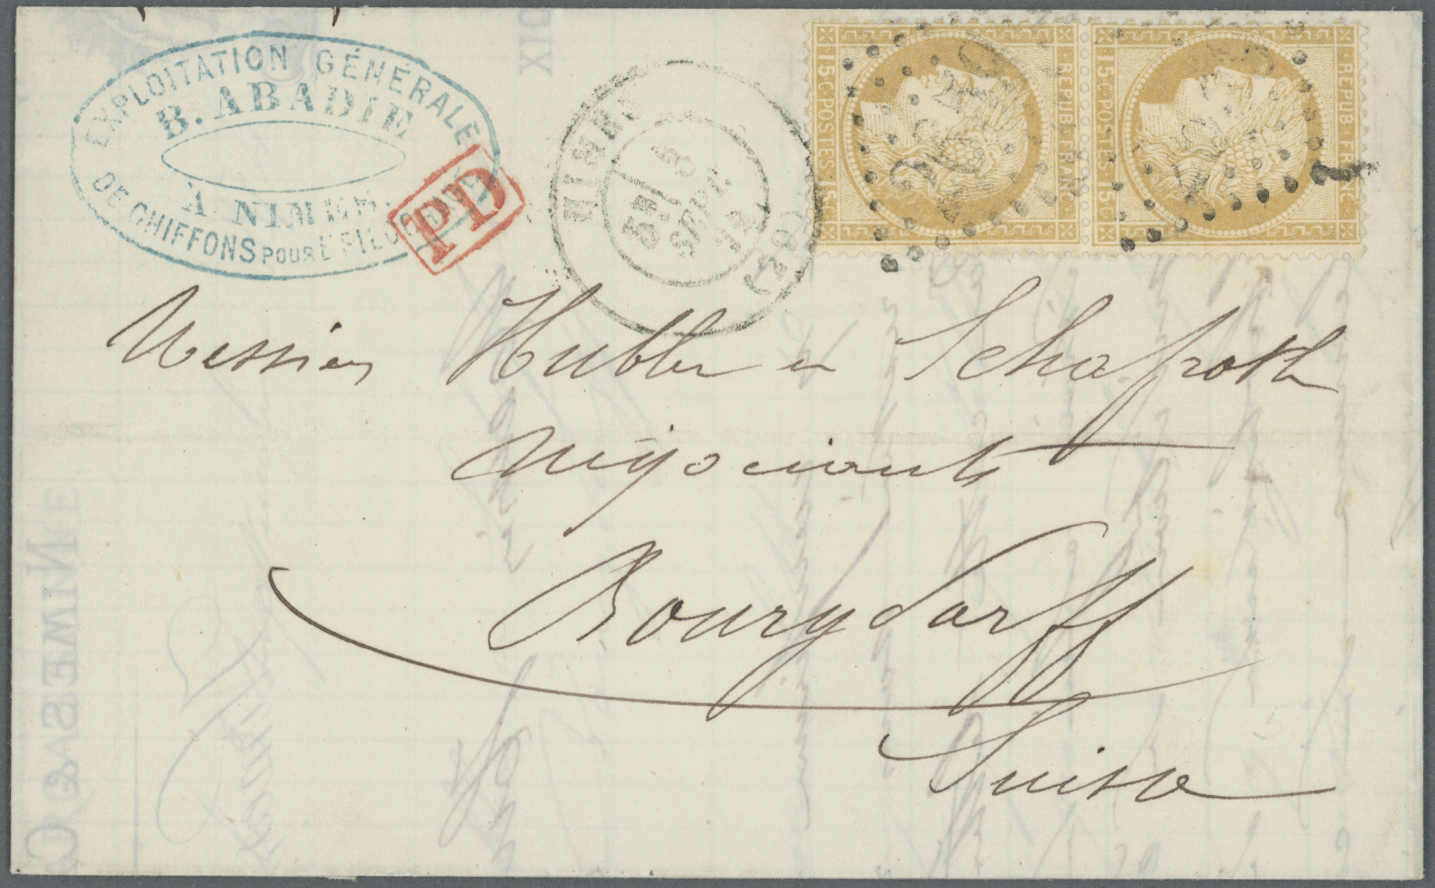 EXPLOITATION GÉNÉRALE
B. ABADIE
A NIMES
DE CHIFFONS POUR
PD
NIMES
5E
5
SEPT.
(28)
REPUB. FRANC.
15 C. POSTES 15 C.
REPUB. FRANC.
15 C. POSTES 15 C.
Messieurs Hubler en Schafroth
Négociants
Bourgdorff
Suisse